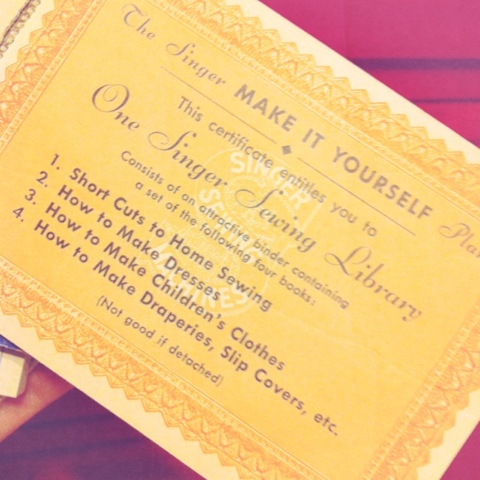 The Singer MAKE IT YOURSELF Plan
This certificate entitles you to
One Singer Sewing Library
Consists of an attractive binder containing
a set of the following four books:
1. Short Cuts to Home Sewing
2. How to Make Dresses
3. How to Make Children's Clothes
4. How to Make Draperies, Slip Covers, etc.
(Not good if detached)
SINGER